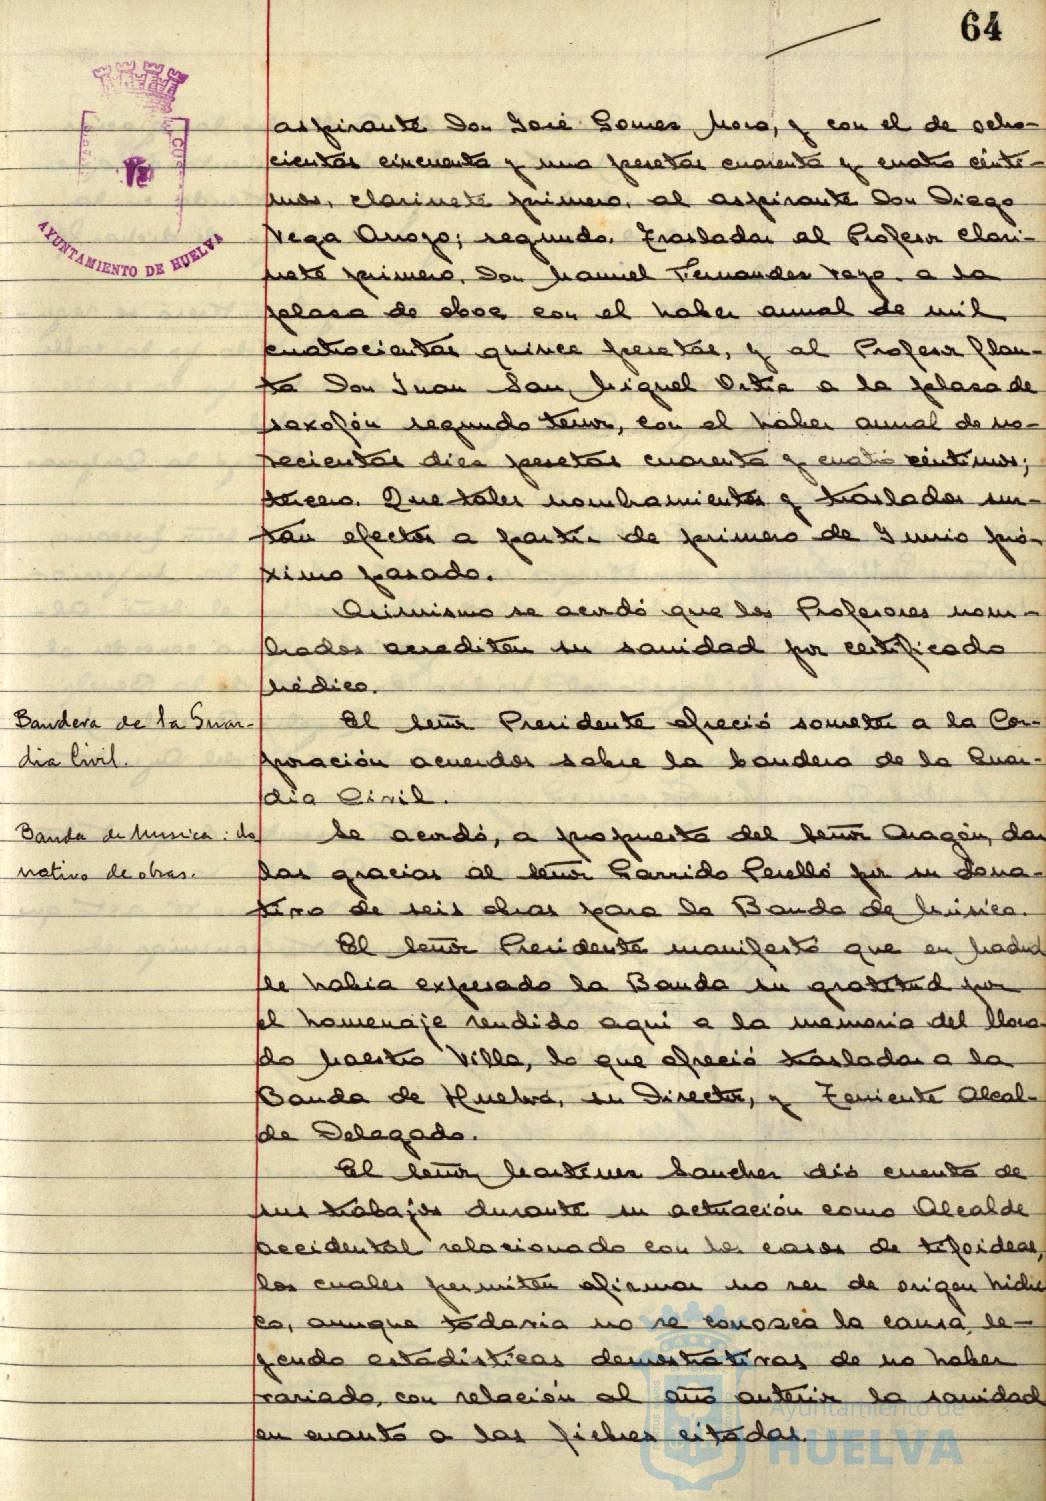 64
AYUNTAMIENTO DE HUELVA
aspirante Don José Gomez Mora, y con el de ocho-
cientas cincuenta y una pesetas cuarenta y cuatro cénti-
mos, clarinete primero, al aspirante Don Diego
Vega Arroyo; segundo. Trasladar al Profesor clari-
nete primero, Don Manuel Fernandez Vazo a la
plaza de oboe con el haber anual de mil
cuatrocientas quince pesetas, y al Profesor flau-
ta Don Juan San Miguel Ortiz a la plaza de
saxofón segundo tenor, con el haber anual de no-
vecientas diez pesetas cuarenta y cuatro céntimos;
tercero. Que tales nombramientos y traslados sur-
tan efectos a partir de primero de Junio pró-
ximo pasado.
Asimismo se acordó que los Profesores nom-
brados acrediten su sanidad por certificado
médico.
Bandera de la Guar-
dia Civil.
El Señor Presidente ofreció someter a la Cor-
poración acuerdos sobre la bandera de la Guar-
dia Civil.
Banda de Musica: do
nativo de obras.
Se acordó, a propuesta del Señor Aragón, dar
las gracias al Señor Garrido Perelló por su dona-
tivo de seis obras para la Banda de Música.
El Señor Presidente manifestó que en Madrid
le había expresado la Banda su gratitud por
el homenaje rendido aqui a la memoria del llora-
do Maestro Villa, lo que ofreció trasladar a la
Banda de Huelva, su Director, y Teniente Alcal-
de Delegado.
El Señor Martinez Sanchez dió cuenta de
sus trabajos durante su actuación como Alcalde
accidental relacionado con los casos de tifoideas,
los cuales permiten afirmar no ser de origen hídri
co, aunque todavia no se conozca la causa, le-
yendo estadísticas demostrativas de no haber
variado, con relación al año anterior la sanidad
en cuanto a las fiebres citadas.
Ayuntamiento de
HUELVA